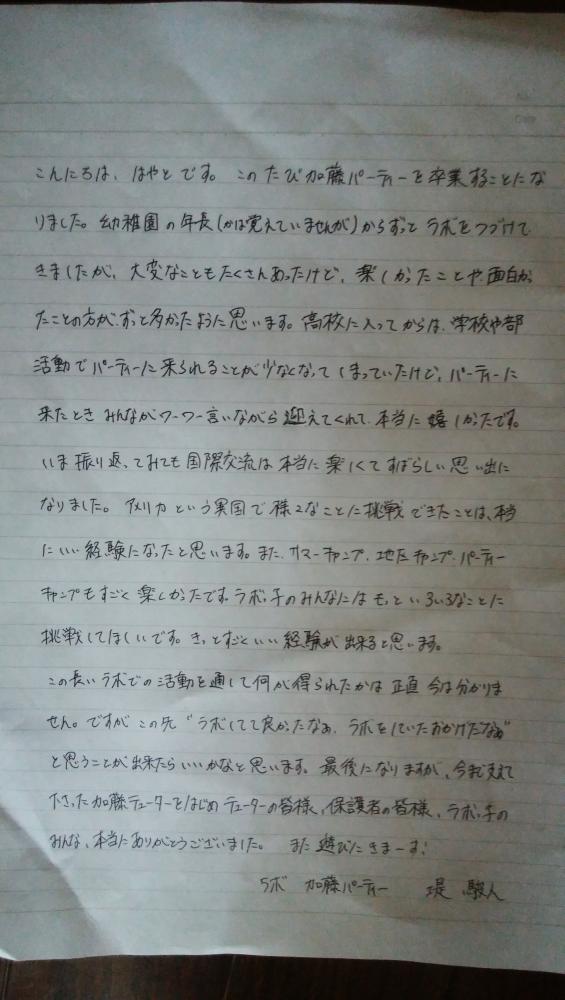 こんにちは、はやとです。このたび加藤パーティーを卒業することにな
りました。幼稚園の年長(かは覚えていませんが)からずっとラボをつづけて
きましたが、大変なこともたくさんあったけど、楽しかったことや面白かっ
たことの方が、ずっと多かったように思います。高校に入ってからは、学校や部
活動でパーティーに来られることが少なくなってしまっていたけど、パーティーに
来たときみんながワーワー言いながら迎えてくれて、本当に嬉しかったです。
いま振り返ってみても国際交流は本当に楽しくてすばらしい思い出に
なりました。アメリカという異国で様々なことに挑戦できたことは、本当
にいい経験になったと思います。また、サマーキャンプ、地区キャンプ、パーティー
キャンプもすごく楽しかったです。ラボっ子のみんなにはもっといろいろなことに
挑戦してほしいです。きっとすごくいい経験が出来ると思います。
この長いラボでの活動を通して何が得られたかは正直今は分かりま
せん。ですがこの先“ラボしてて良かったなぁ、ラボをしていたおかげだなぁ”
と思うことが出来たらいいかなと思います。最後になりますが、今まで支えて
下さった加藤テューターをはじめテューターの皆様、保護者の皆様、ラボっ子の
みんな、本当にありがとうございました。また遊びにきまーす!
ラボ 加藤パーティー 堤 駿人